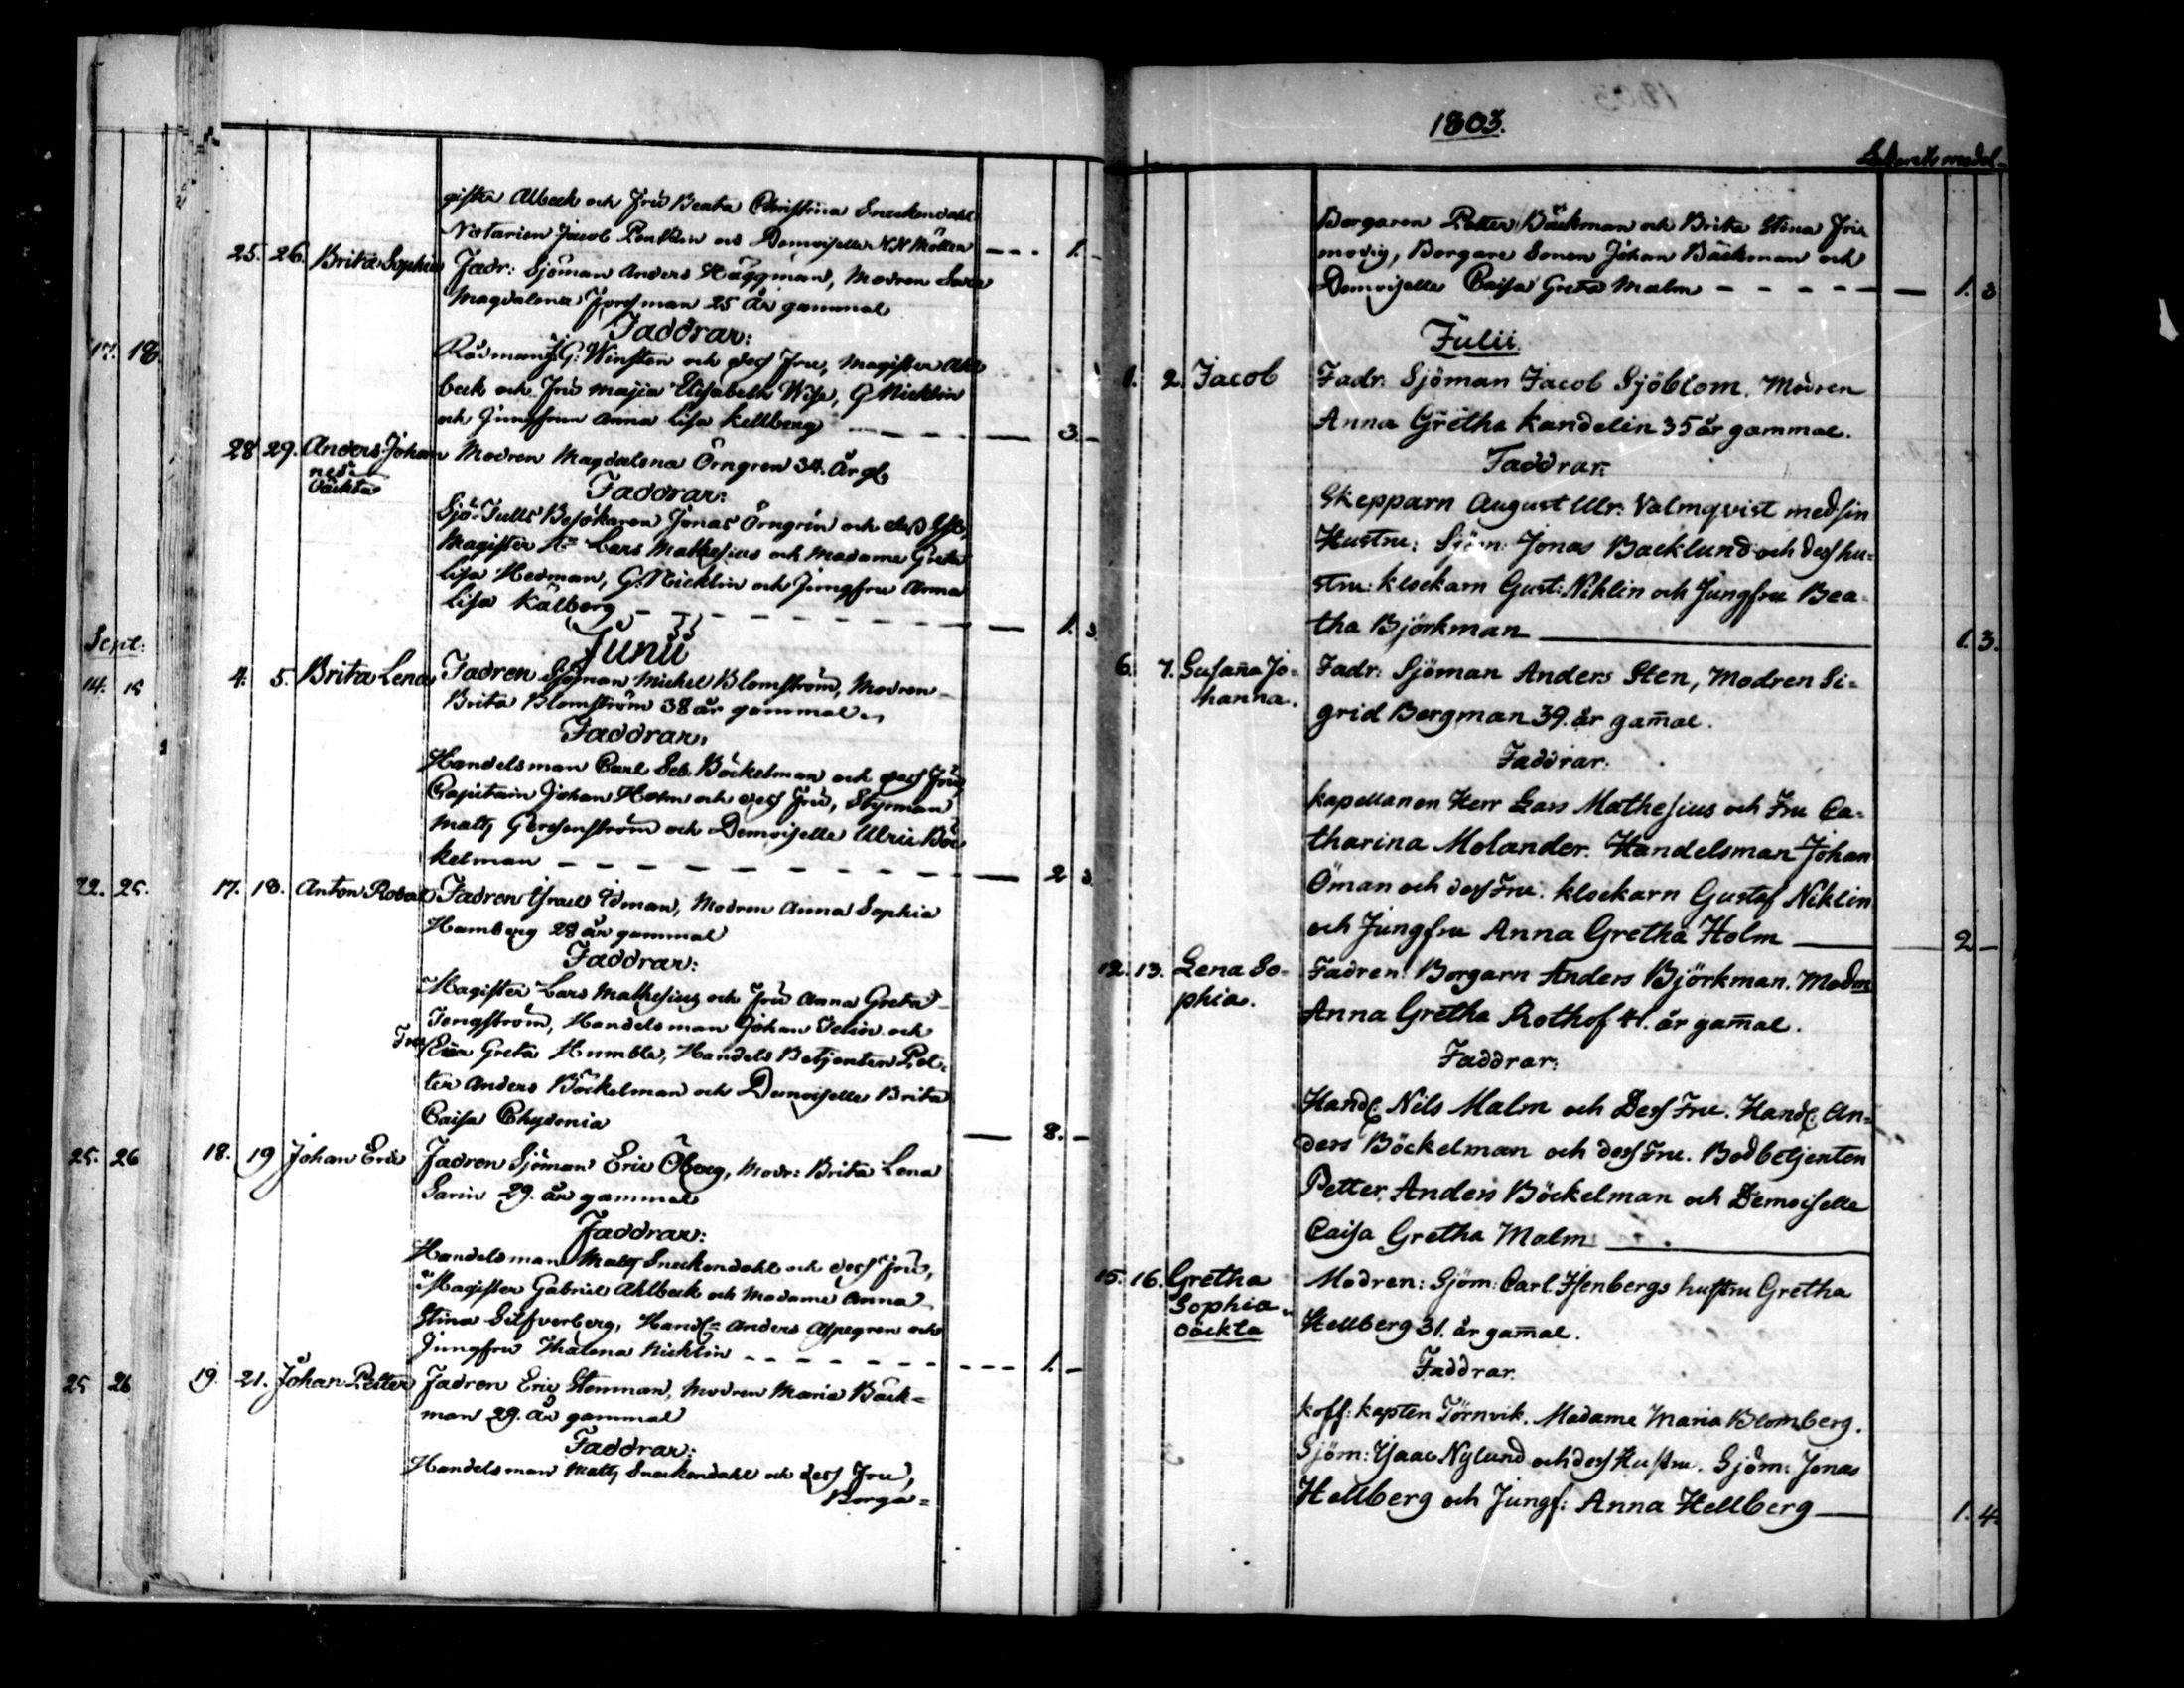 gister Albeck och Fru Beata Christina Sneckendahl
Notarien Jacob och Demoiselle N.N Möller - - - 1. -
25. 26. Brita Sophia Fadr: Sjöman Anders Häggman, Modren Sara
Magdalena Forsman 25 år gammal
Faddrar:
Rådman G: Winsten och dess Fru, Magister Ahl
beck och Fru Maja Elisabeth Wise, G Nicklin
och Jungfrun Anna Lisa Kellberg - - - 3. -
28 29. Anders Johan Modren Magdalena Örngren 34. År gl,
nes.
oäckta
Faddrar:
Sjö-Tulls Besökaren Jonas Örngrén och dess
Magister Lars Mathesius och Madame Greta
Lisa Hedman, G. Nicklin och Jungfru Anna
Lisa Kälberg - - - 1. 3.
Junii
4. 5. Brita Lena Fadren Sjöman Michel Blomström, Modren
Brita Blomström 38 år gammal
Faddrar,
Handelsman Carl Seb. Böckelman och dess Fru,
Capitain Johan Holm och dess Fru, Styrman
Matts och Demoiselle Ulric Böc
kelman - - - 2 3.
17. 18. Anton Robert Fadren Israel Idman, Modren Anna Sophia
Hamberg 28 år gammal
Faddrar:
Magister Lars Mathesius och Fru Anna Greta
Tengström, Handelsman Johan och
Fru Greta Humble, Handels Betjenten Pet-
ter Anders Böckelman och Demoiselle Brita
Caisa Chydenia — 8. -
18. 19 Johan Eric Fadren Sjöman Eric Öberg, Modr: Brita Lena
Sarin 29. år gammal
Faddrar:
Handelsman Matts Sneckendahl och dess Fru,
Magister Gabriel Ahlbeck och Madame Anna
Stina Silfverberg, Handl= Anders Alpegren och
Jungfru Thalena Nicklin - - - 1. -
19. 21. Johan Petter Fadren Eric Stenman, Modren Maria Bäck=
man 29. år gammal
Faddrar:
Handelsman Matts Sneckendahl och dess Fru,
Borga=
17. 18.
Sept:
14. 15
22. 25.
25. 26
25 26
1803.
Lazaretts medel-
Borgaren Petter Bäckman och Brita Stina Fri
modig, Borgare Sonen Johan Bäckman och
Demoiselle Caisa Greta Malm - - - 1. 3
Julii.
1. 2. Jacob Fadr: Sjöman Jacob Sjöblom. Modren
Anna Gretha Kandelin 35 år gammal.
Faddrar:
Skepparn August Ulr: Valmqvist med sin
Hustru: Sjöm: Jonas Backlund och dess hu=
stru: klockarn Gust: Niklin och Jungfru Bea=
tha Björkman — 1. 3.
6. 7. Susaña Jo= Fadr: Sjöman Anders Sten, Modren Si=
hanna. grid Bergman 39. år gam̄al.
Faddrar:
kapellanen Herr Lars Mathesius och Fru Ca=
tharina Molander. Handelsman Johan
Öman och dess Fru. klockarn Gustaf Niklin
och Jungfru Anna Gretha Holm — 2 -
12. 13. Lena So= Fadren: Borgarn Anders Björkman. Modrn
phia. Anna Gretha Rothof 41. år gam̄al.
Faddrar:
Handl: Nils Malm och Dess Fru. Handl: An=
ders Böckelman och dess Fru. Bodbetjenten
Petter Anders Böckelman och Demoiselle
Caisa Gretha Malm —
15. 16. Gretha Modren: Sjöm: Carl Isenbergs hustru Gretha
Sophia
oäckta Hellberg 31. år gam̄al.
Faddrar.
koff: kapten Törnvik. Madame Maria Blomberg.
Sjöm: Isaac Nylund och dess Hustru. Sjöm: Jonas
Hellberg och Jungf: Anna Hellberg — 1. 4.